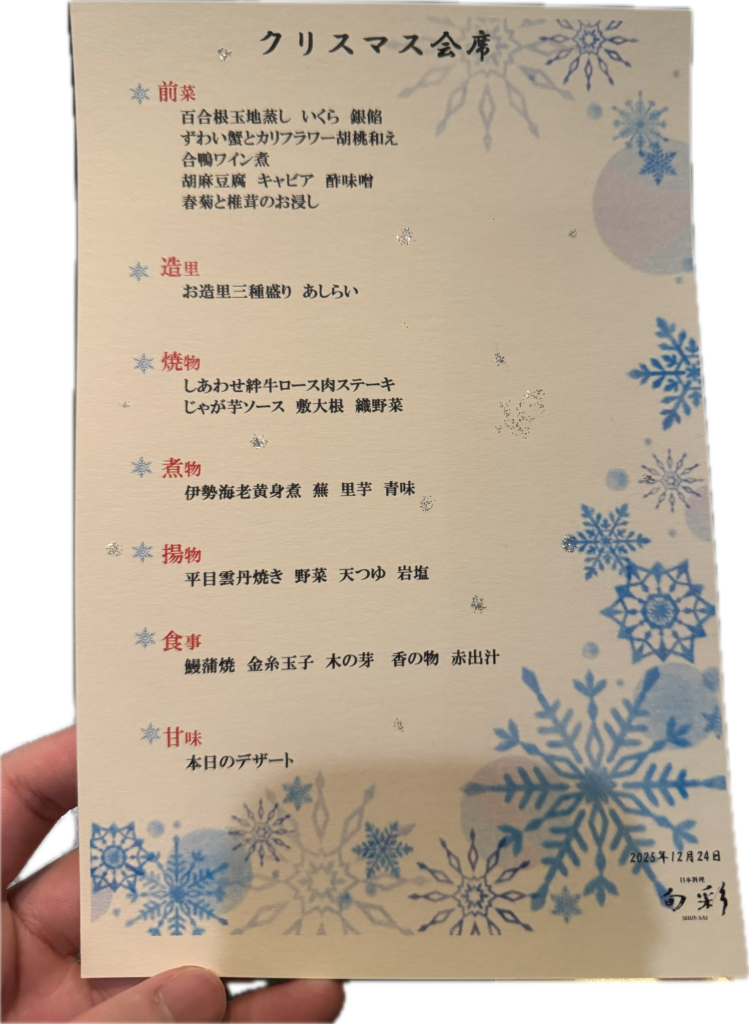 クリスマス会席
前菜
百合根玉地蒸し いくら 銀餡
ずわい蟹とカリフラワー胡桃和え
合鴨ワイン煮
胡麻豆腐 キャビア 酢味噌
春菊と椎茸のお浸し
造里
お造里三種盛り あしらい
焼物
しあわせ絆牛ロース肉ステーキ
じゃが芋ソース 敷大根 織野菜
煮物
伊勢海老黄身煮 蕪 里芋 青味
揚物
平目雲丹焼き 野菜 天つゆ 岩塩
食事
鰻蒲焼 金糸玉子 木の芽 香の物 赤出汁
甘味
本日のデザート
2025年12月24日
日本料理
旬彩
SHUN-SAI